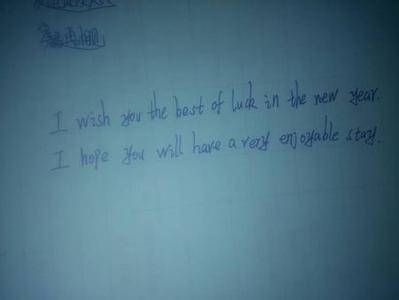 I wish you the best of luck in the new year.
I hope you will have a very enjoyable stay.